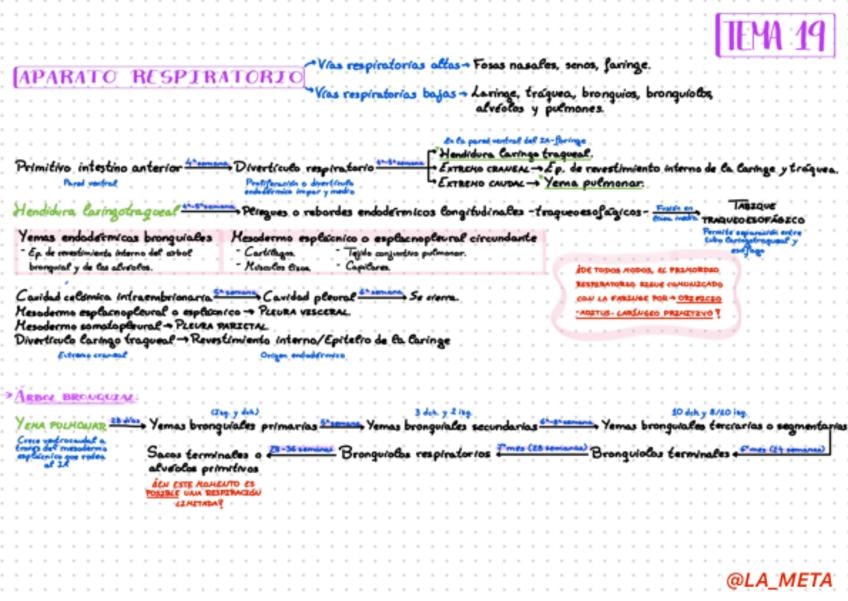 TEMA 19
APARATO RESPIRATORIO
Vías respiratorias altas → Fosas nasales, senos, faringe.
Vías respiratorias bajas → Laringe, tráquea, bronquios, bronquiolos,
alvéolos y pulmones.
En la pared ventral del IA-faringe
Primitivo intestino anterior 4ª semana → Divertículo respiratorio 4ª-5ª semana → Hendidura laringo traqueal.
EXTREMO CRANEAL → Ep. de revestimiento interno de la laringe y tráquea.
EXTREMO CAUDAL → Yema pulmonar.
Pared ventral
Proliferación o divertículo
endodérmico impar y medio
Hendidura laringotraqueal 4ª-5ª semana → Pliegues o rebordes endodérmicos longitudinales -traqueoesofágicos- Fusión en línea media → TABIQUE
TRAQUEOESOFÁGICO
Permite separación entre
tubo laringotraqueal y
esófago
Yemas endodérmicas bronquiales
- Ep. de revestimiento interno del arbol
bronquial y de los alveolos.
Mesodermo esplácnico o esplacnopleural circundante
- Cartílagos. - Tejido conjuntivo pulmonar.
- Músculos lisos. - Capilares.
¿DE TODOS MODOS, EL PRIMORDIO
RESPIRATORIO SIGUE COMUNICADO
CON LA FARINGE POR → ORIFICIO
-ADITUS- LARÍNGEO PRIMITIVO?
Cavidad celómica intraembrionaria → Cavidad pleural → Se cierra.
Mesodermo esplacnopleural o esplácnico → PLEURA VISCERAL
Mesodermo somatopleural → PLEURA PARIETAL
Divertículo laringo traqueal → Revestimiento interno/Epitelio de la laringe
Extremo craneal Origen endodérmico
→ ÁRBOL BRONQUIAL
(Izq. y dch) 3 dch. y 2 izq. 10 dch y 8/10 izq.
YEMA PULMONAR 28 días → Yemas bronquiales primarias 5ª semana → Yemas bronquiales secundarias 6ª-8ª semana → Yemas bronquiales terciarias o segmentarias
Crece ventrocaudal a
través del mesodermo
esplácnico que rodea
al IA
Sacos terminales o
alvéolos primitivos ← 28-36 semanas Bronquiolos respiratorios ← 7º mes (28 semanas) Bronquiolos terminales ← 6º mes (24 semanas)
¿EN ESTE MOMENTO ES
POSIBLE UNA RESPIRACIÓN
LIMITADA?
@LA_META